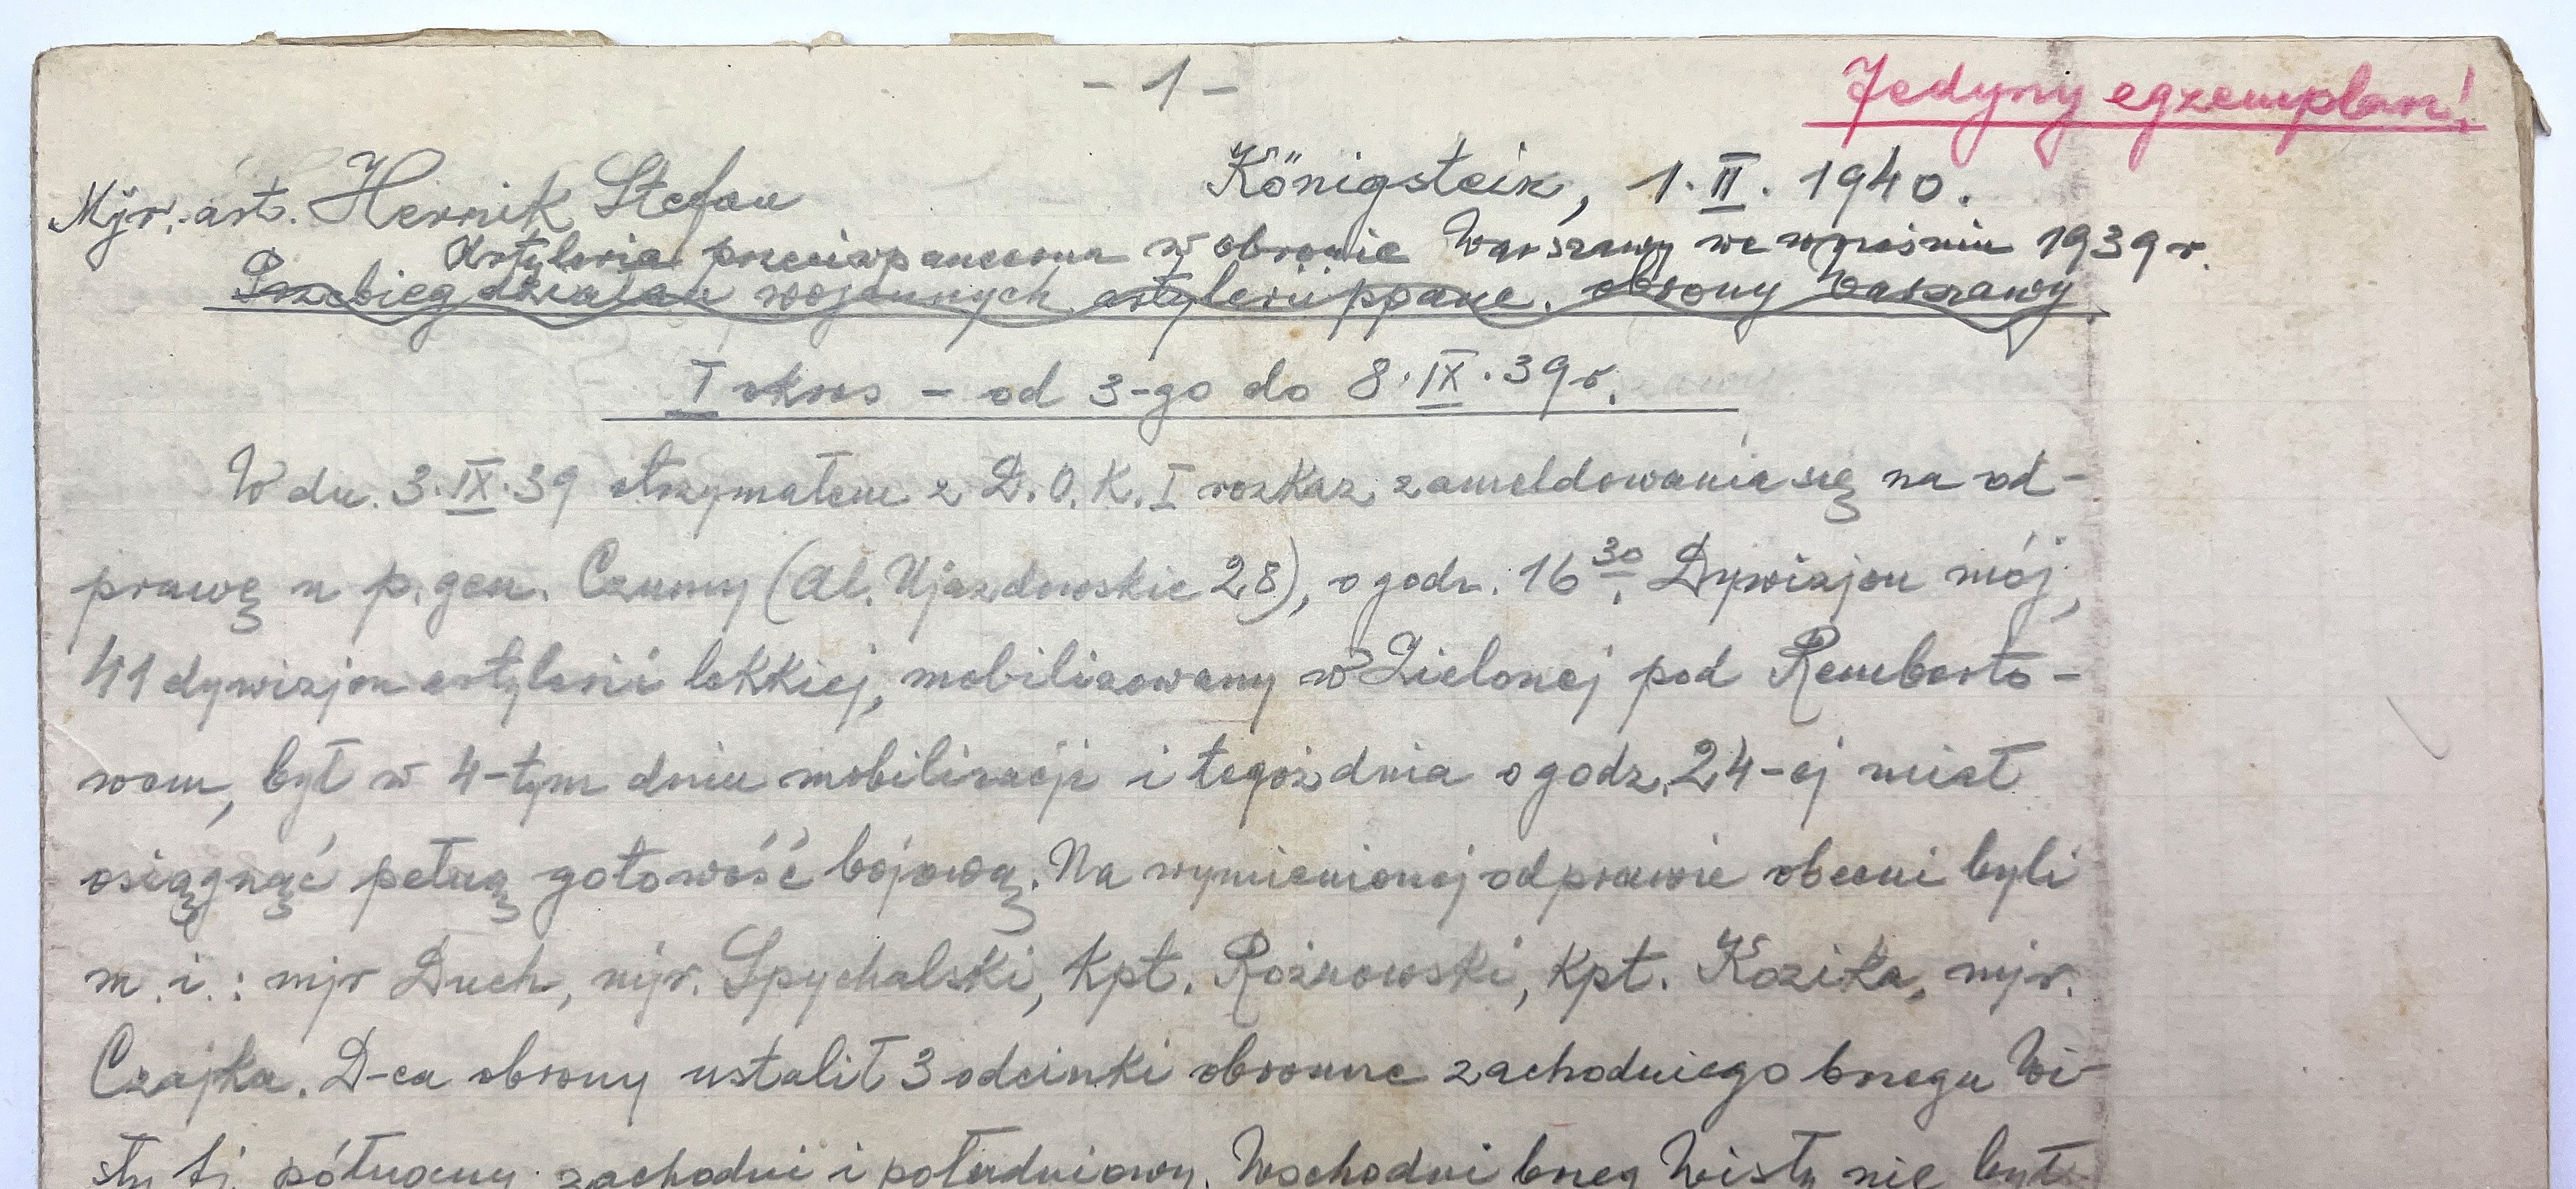 - 1 -
Jedyny egzemplarz!
Mjr. art. Hernik Stefan
Königstein, 1.II.1940.
Artyleria przeciwpancerna w obronie Warszawy we wrześniu 1939 r.
Przebieg działań wojennych artylerii ppanc. obrony Warszawy.
I okres - od 3-go do 8.IX.39 r.
W dn. 3.IX.39 otrzymałem z D.O.K. I rozkaz zameldowania się na od-
prawę u p. gen. Czumy (Al. Ujazdowskie 28), o godz. 16 30. Dywizjon mój,
41 dywizjon artylerii lekkiej, mobilizowany w Zielonej pod Rembarto-
wem, był w 4-tym dniu mobilizacji i tegoż dnia o godz. 24-ej miał
osiągnąć pełną gotowość bojową. Na wymienionej odprawie obecni byli
m. i.: mjr Duch, mjr. Spychalski, kpt. Rożnowski, kpt. Kozika, mjr.
Czajka. D-ca obrony ustalił 3 odcinki obronne zachodniego brzegu Wi-
sły tj. północny, zachodni i południowy. Wschodni brzeg Wisły nie był